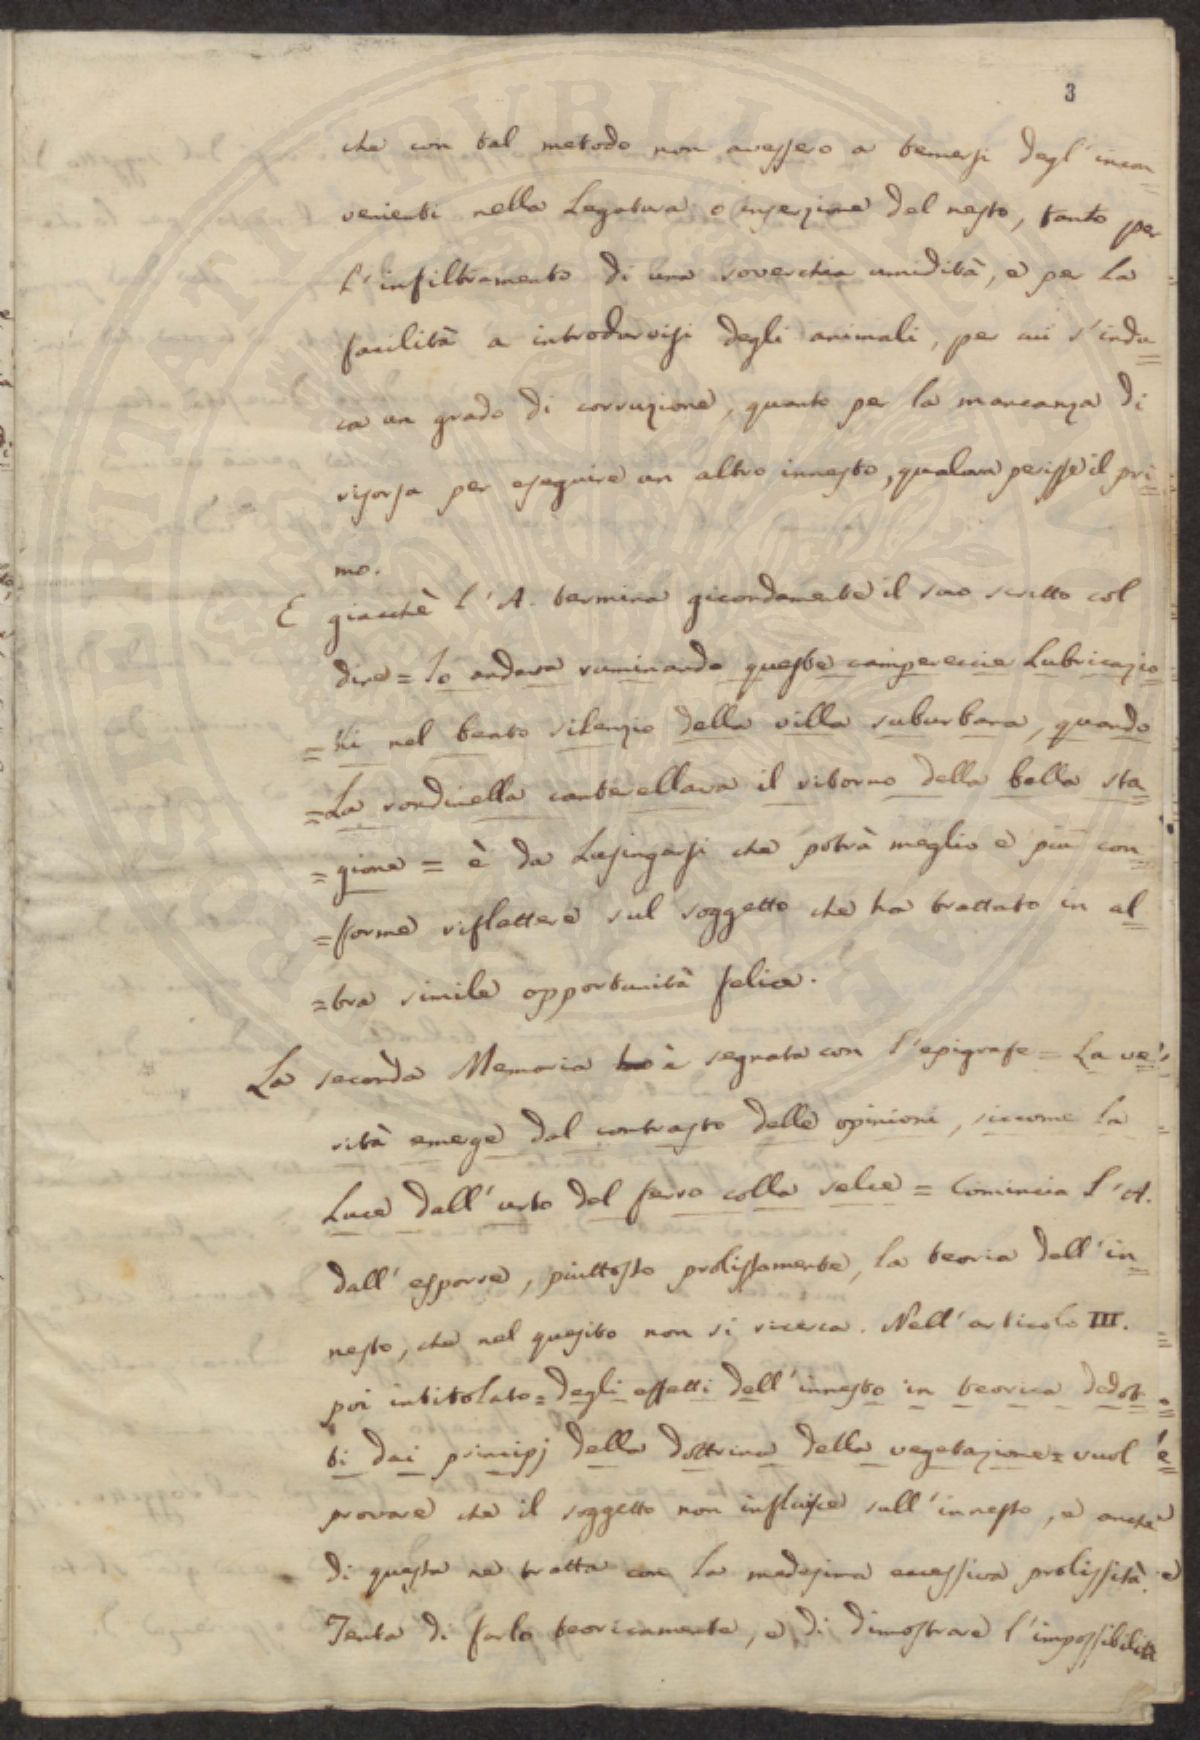 3
che con tal metodo non avessero a temersi degl'incon=
venienti nella Legatura o inserzione del nesto, tanto per
l'infiltramento di una soverchia umidità, e per la
facilità a introdurvisi degli animali, per cui s'indu=
ca un grado di corruzione, quanto per la mancanza di
risorsa per eseguire un altro innesto, qualora perisse il pri=
mo.
E giacchè l'A. termina giocondamente il suo scritto col
dire = Io andava ruminando queste camperecie Lubricazio=
=ni nel beato silenzio della villa suburbana, quando
=La rondinella canterellava il ritorno della bella sta=
=gione = è da Lusingarsi che potrà meglio e più con=
=forme riflettere sul soggetto che ha trattato in al=
=tra simile opportunità felice.
La seconda Memoria è segnata con l'epigrafe = La ve=
rità emerge dal contrasto delle opinioni, siccome la
Luce dall'urto del ferro colla selce = Comincia l'A.
dall'esporre, piuttosto prolissamente, la teoria dell'in=
nesto, che nel quesito non si ricerca. Nell'articolo III.
poi intitolato = degli effetti dell'innesto in teorica dedot=
ti dai principj della dottrina della vegetazione = vuol
provare che il soggetto non influisce sull'innesto, e anche
di questa ne tratta con la medesima eccessiva prolissità.
Tenta di farlo teoricamente, e di dimostrare l'impossibilità